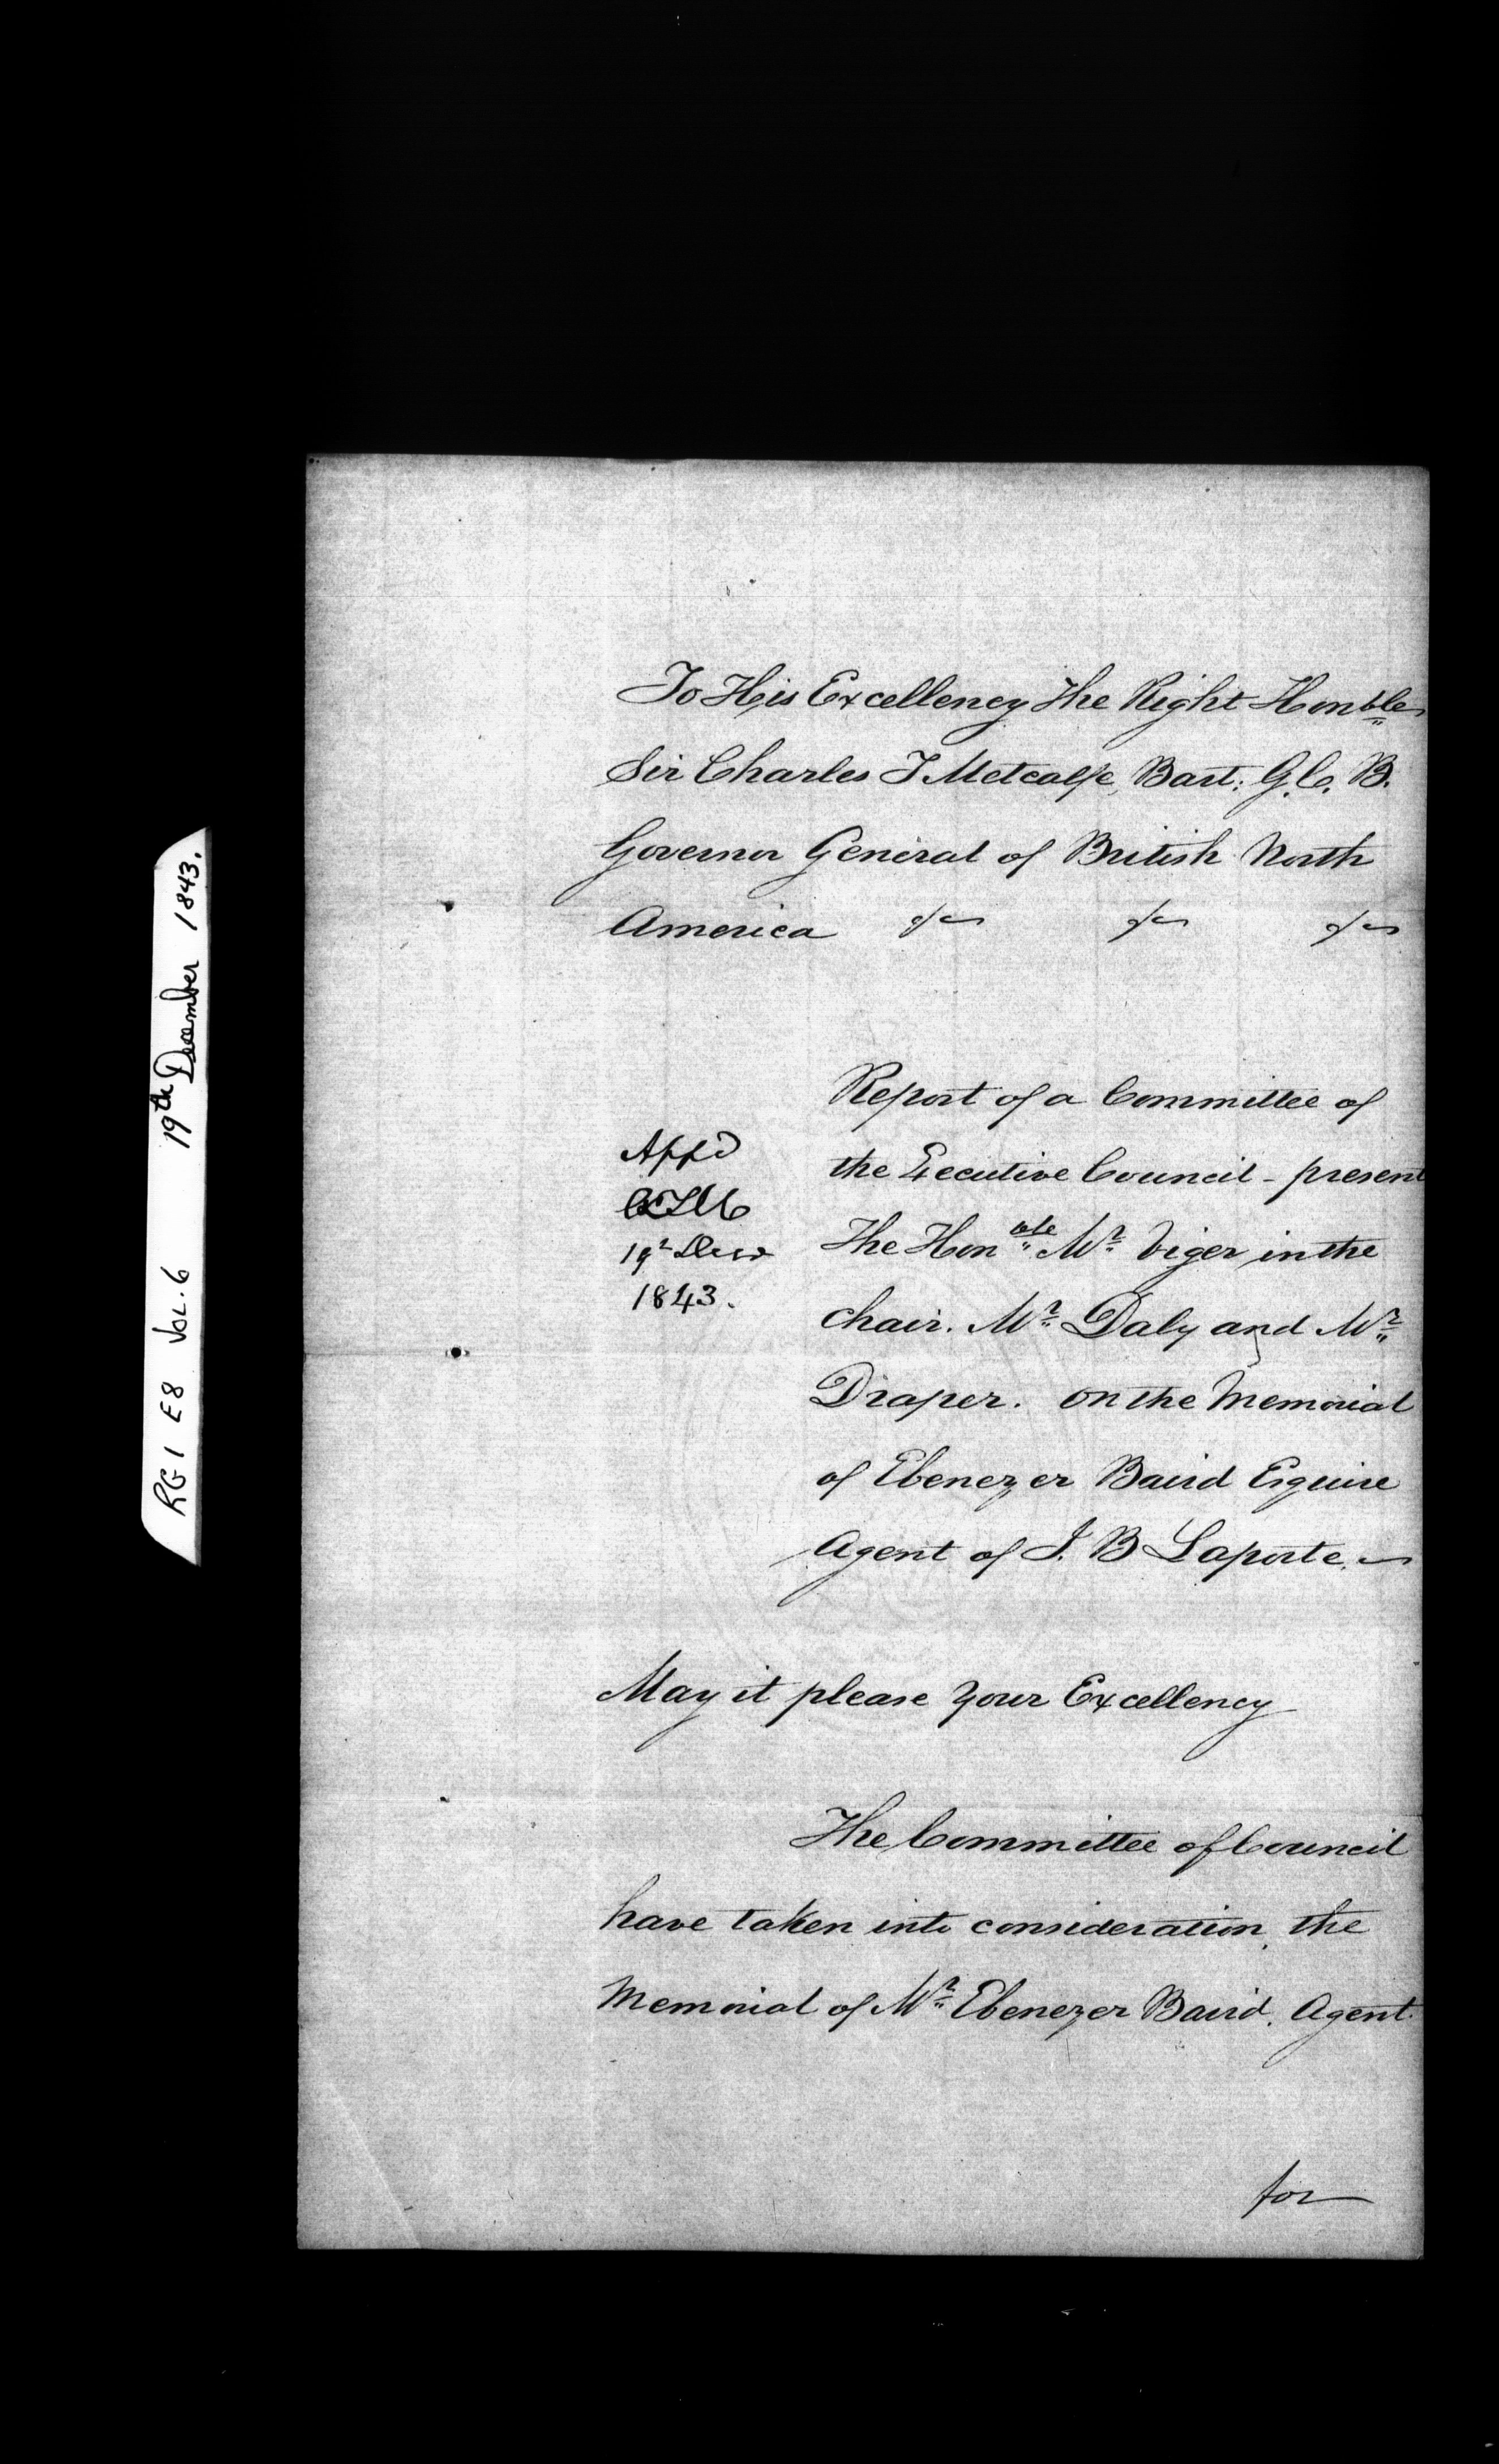 RG1 E8 VOL.6 19th December 1843.
To His Excellency The Right Honble
Sir Charles T Metcalfe, Bart: G.C.B.
Governor General of British North
America &c &c &c
Report of a Committee of
the Executive Council - present
The Honble Mr Viger in the
Chair. Mr Daly and Mr
Draper. on the Memorial
of Ebenezer Baird Esquire
Agent of J. B Laporte.
Appd
CTM
19 Decr
1843.
May it please Your Excellency
The Committee of Council
have taken into consideration, the
Memorial of Mr Ebenezer Baird. Agent
for